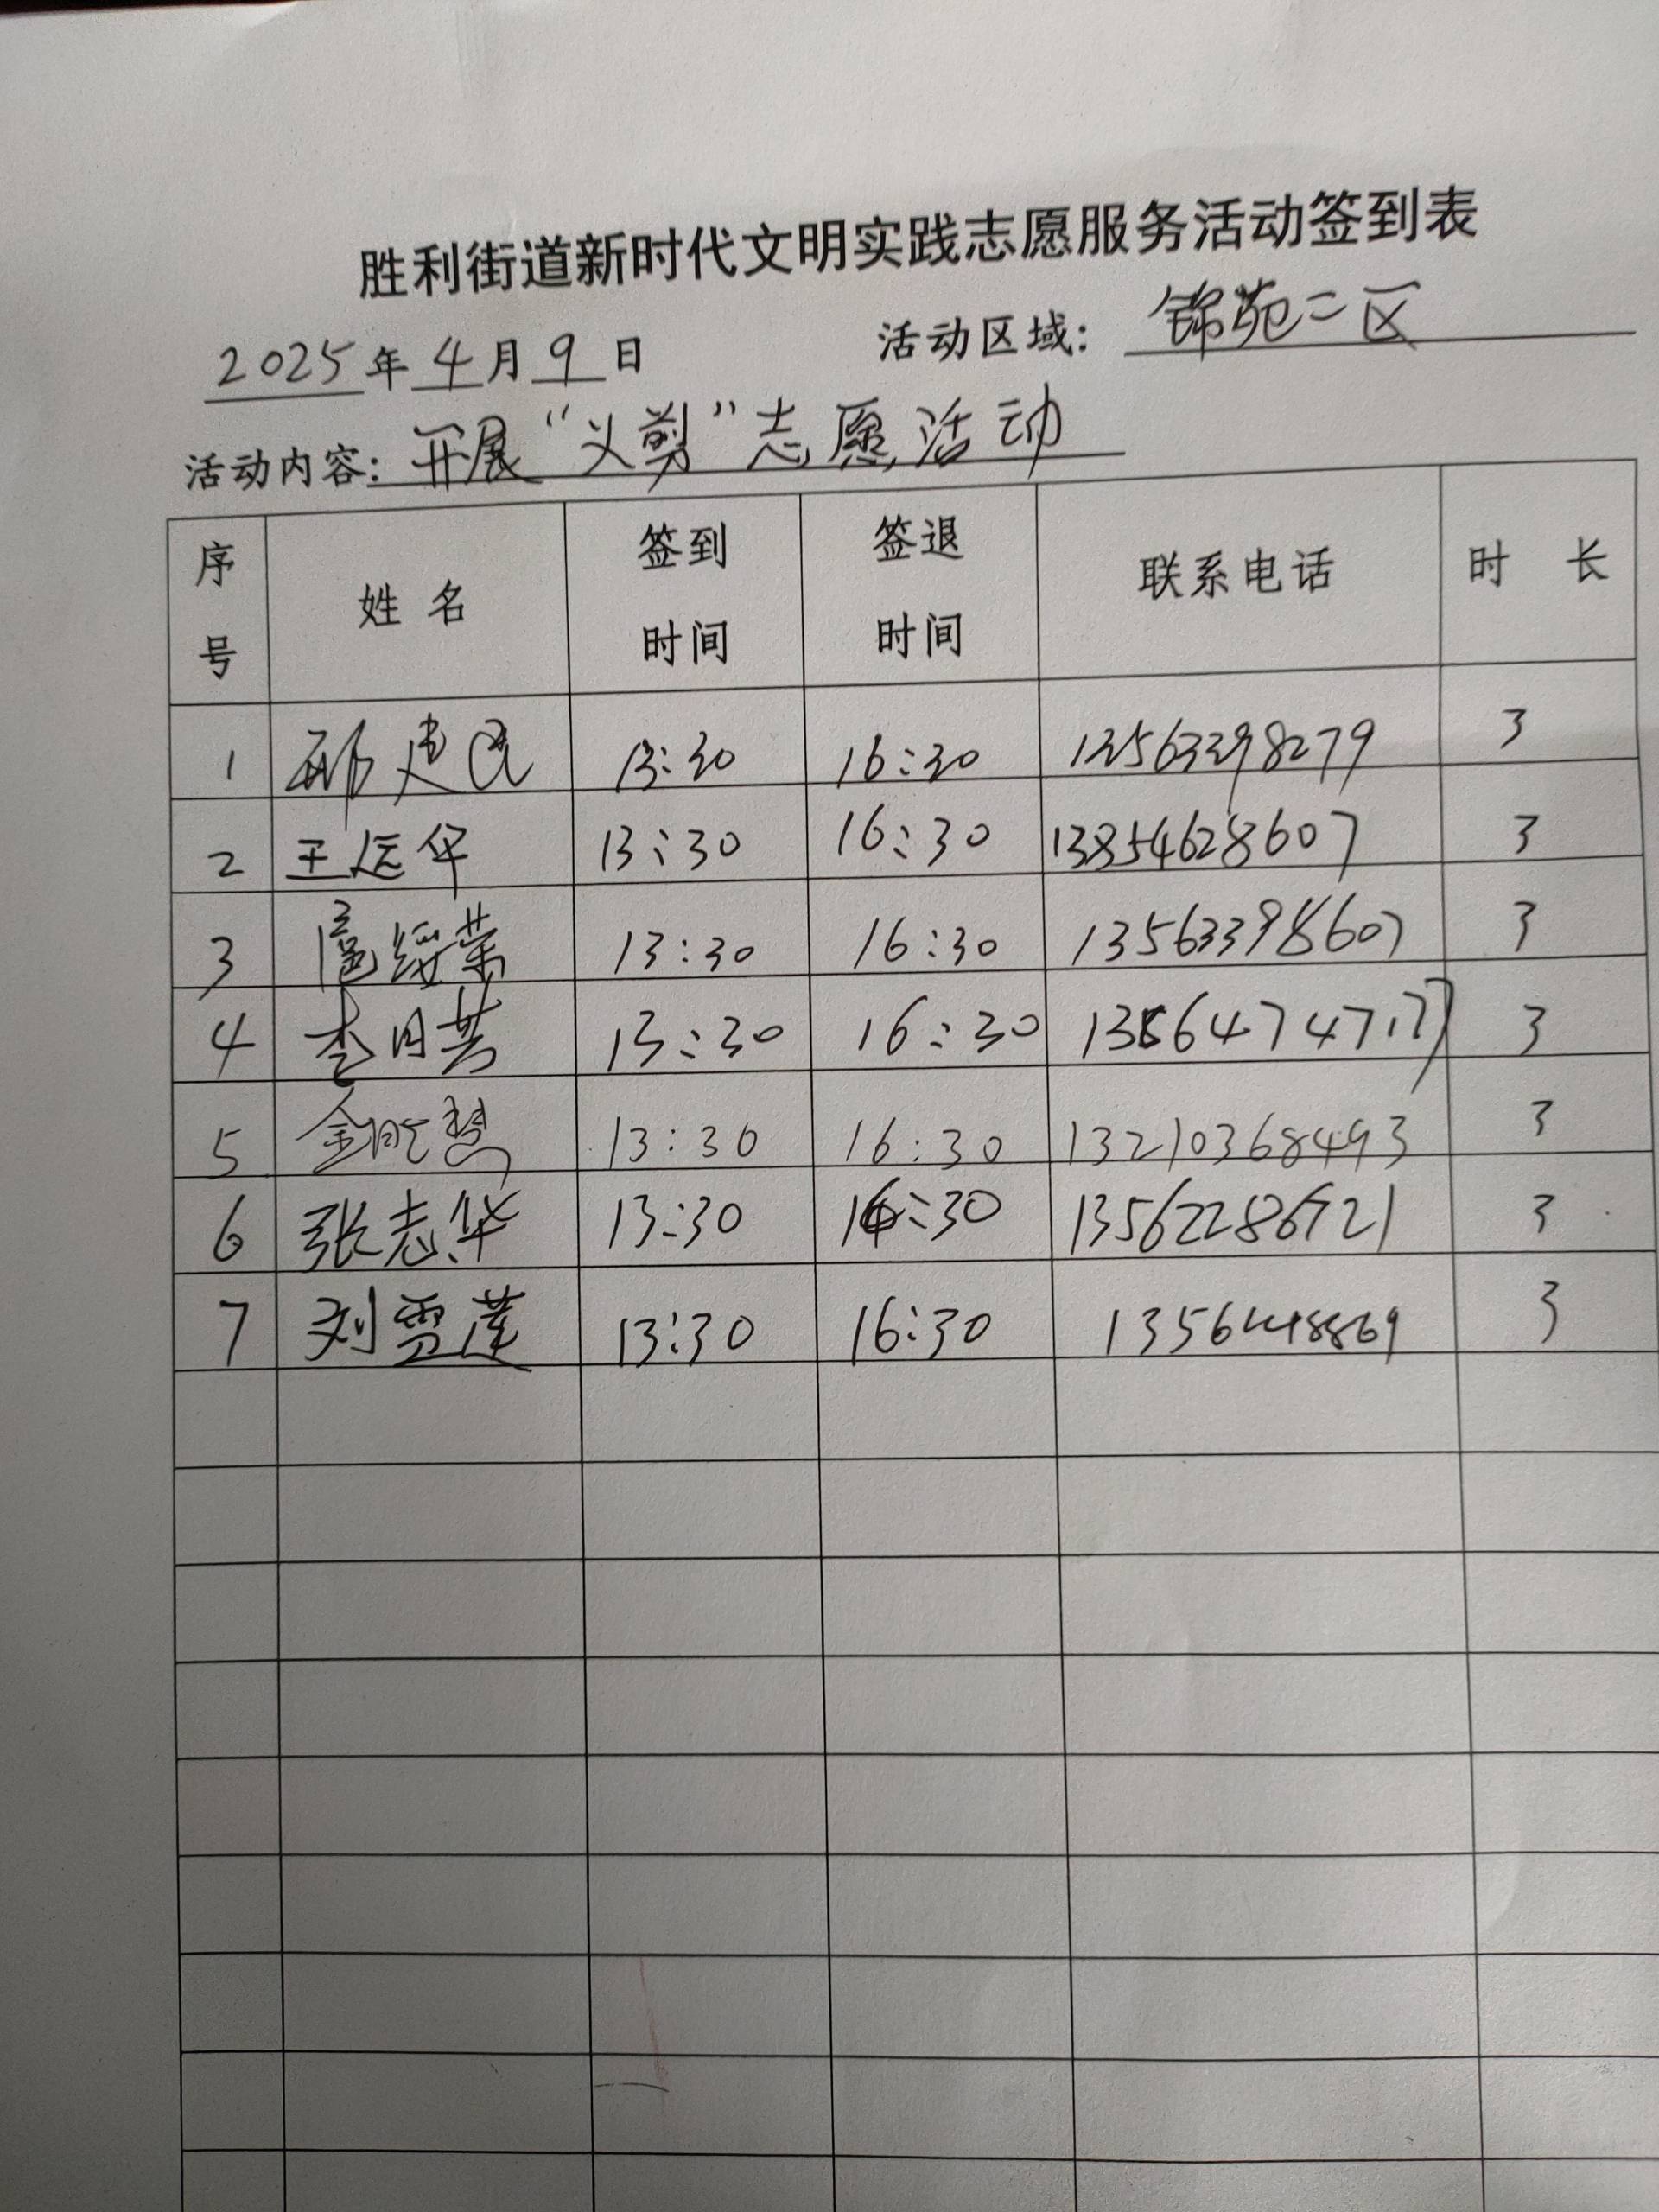 胜利街道新时代文明实践志愿服务活动签到表
2025年4月9日 活动区域：锦苑二区
活动内容：开展“义剪”志愿活动
序号 姓名 签到时间 签退时间 联系电话 时 长
1 建民 13:30 16:30 13563398279 3
2 王运华 13:30 16:30 13854628607 3
3 荣 13:30 16:30 13563398607 3
4 李月芸 13:30 16:30 3
5 慧 13:30 16:30 13210368493 3
6 张志华 13:30 16:30 3
7 刘雪莲 13:30 16:30 3